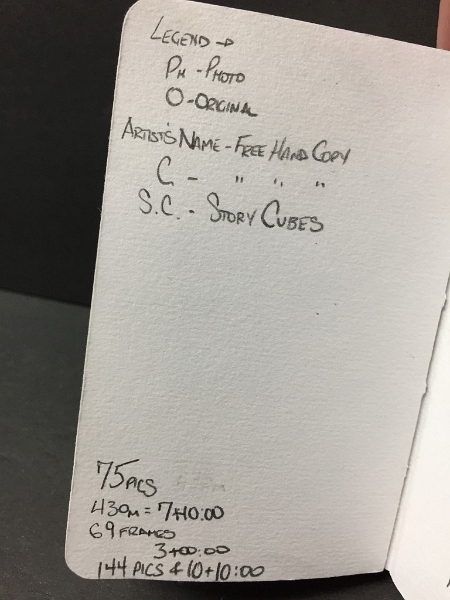 LEGEND →
PH - PHOTO
O - ORIGINAL
ARTIST'S NAME - FREE HAND COPY
C - " " "
S.C. - STORY CUBES
75 PICS
430M = 7H10:00
69 FRAMES
3H00:00
144 PICS & 10H10:00